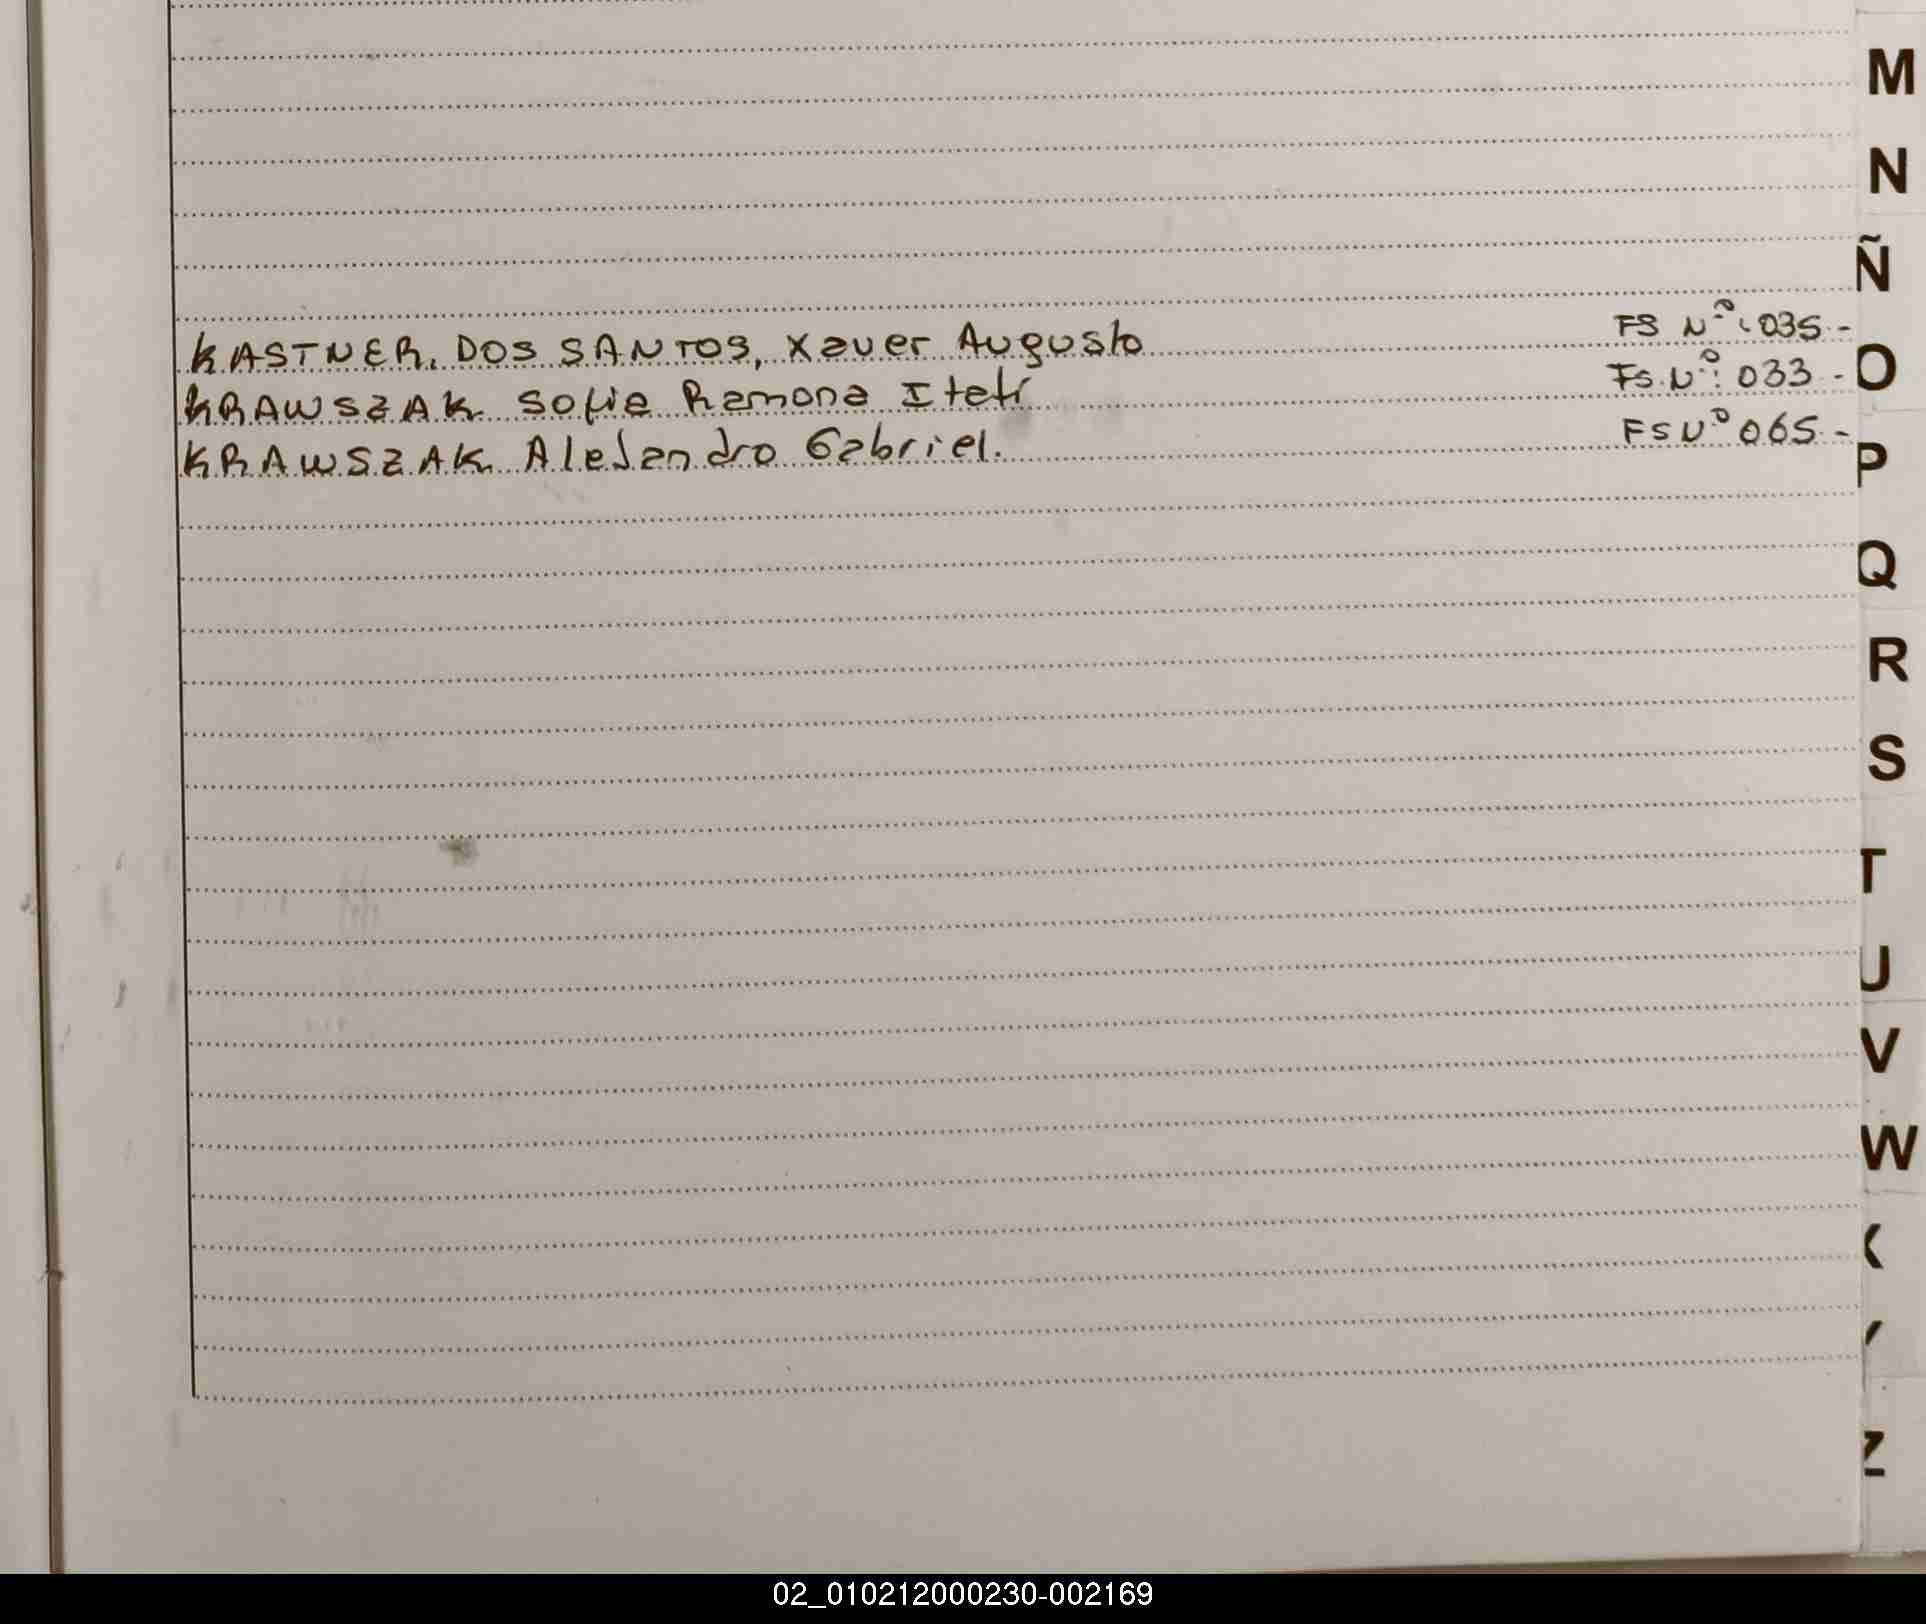 M
N
Ñ
KASTNER. DOS SANTOS, Xaver Augusto FS Nº: 035 -
O
KRAWSZAK Sofia Ramona Itatí Fs. Nº: 033 -
KRAWSZAK Alejandro Gabriel. FS Nº 065 -
P
Q
R
S
T
U
V
W
X
Y
Z
02_010212000230-002169